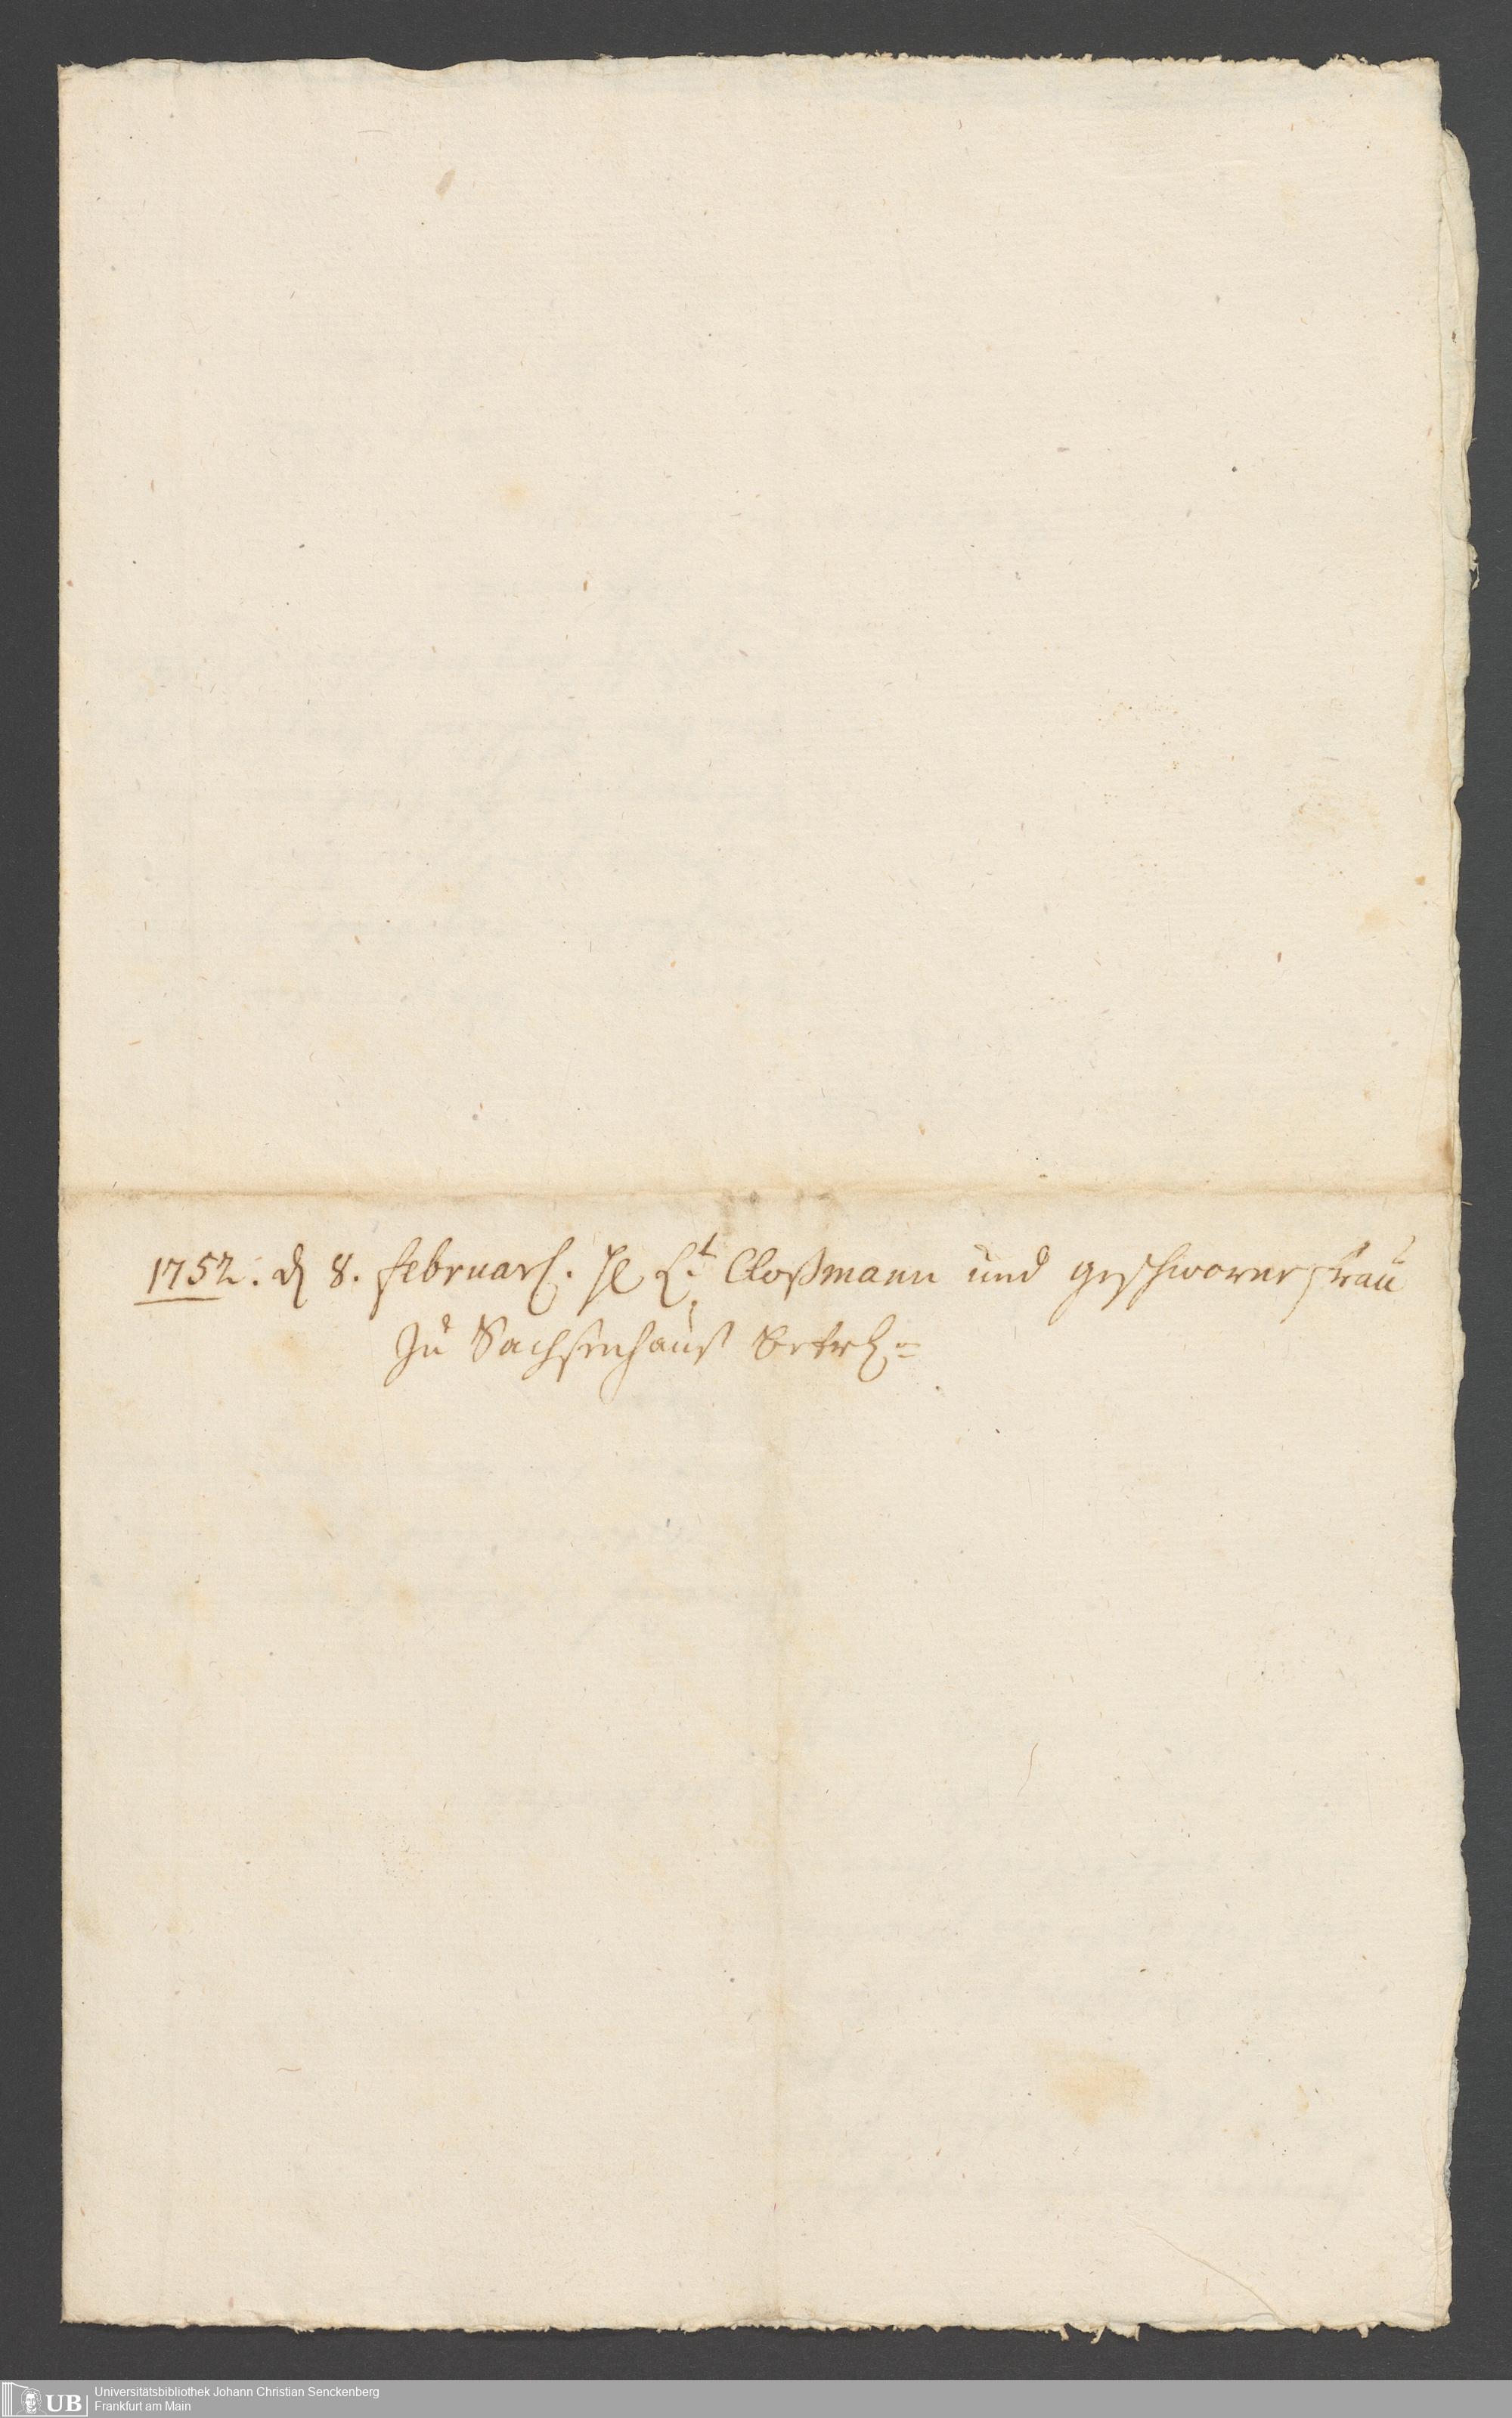 1752. d 8. februarÿ. H L.t Cloßmann und geschworne frau
zu Sachsenhauß betr.
Universitätsbibliothek Johann Christian Senckenberg
Frankfurt am Main
UB